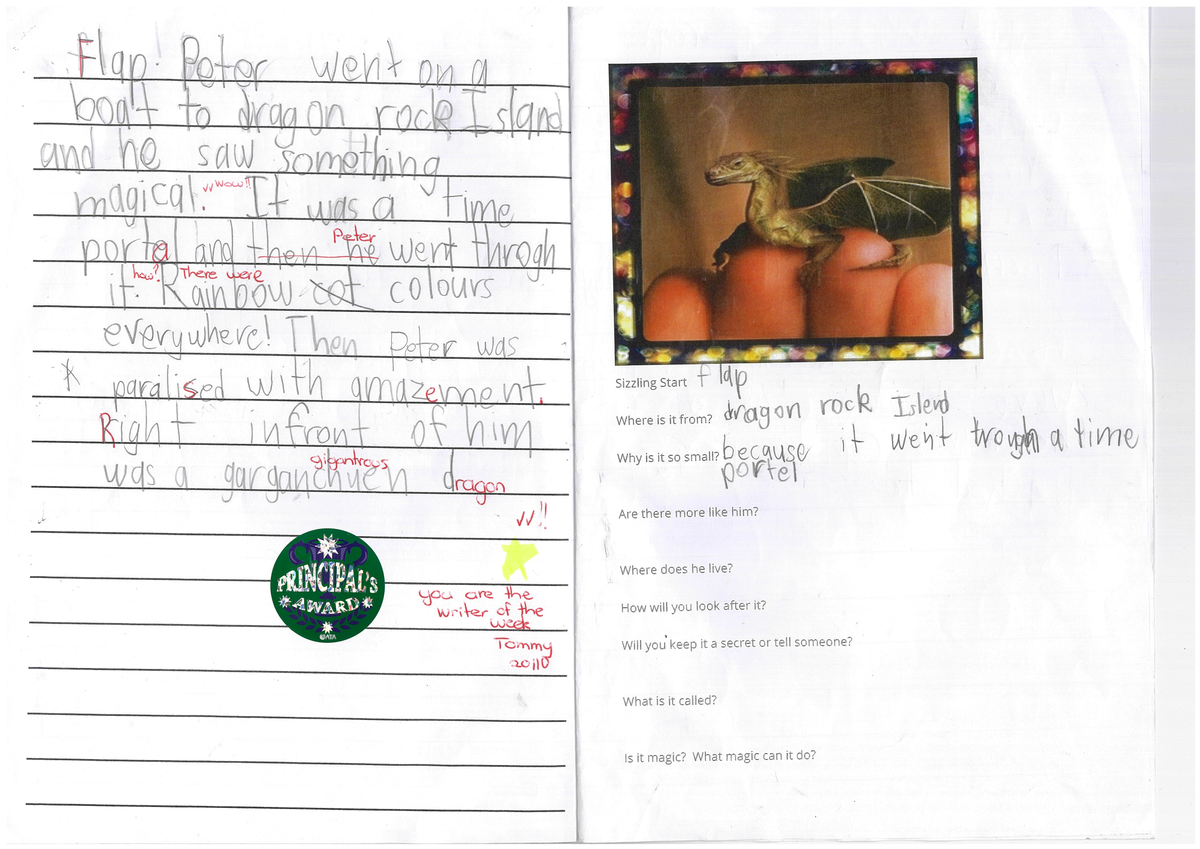 Flap. Peter went on a
boat to dragon rock Island
and he saw something
magical. ✓✓ wow!! It was a time
Peter
portal and then he went throgh
how? There were
it. Rainbow cot colours
everywhere! Then Peter was
* paralised with amazement.
Right infront of him
gigantroys
was a garganchuen dragon
✓✓!!
PRINCIPAL'S
AWARD
©ATA
you are the
writer of the
week
Tommy
20/10
Sizzling Start flap
Where is it from? dragon rock Islend
Why is it so small? because it went trough a time
portel
Are there more like him?
Where does he live?
How will you look after it?
Will you keep it a secret or tell someone?
What is it called?
Is it magic? What magic can it do?